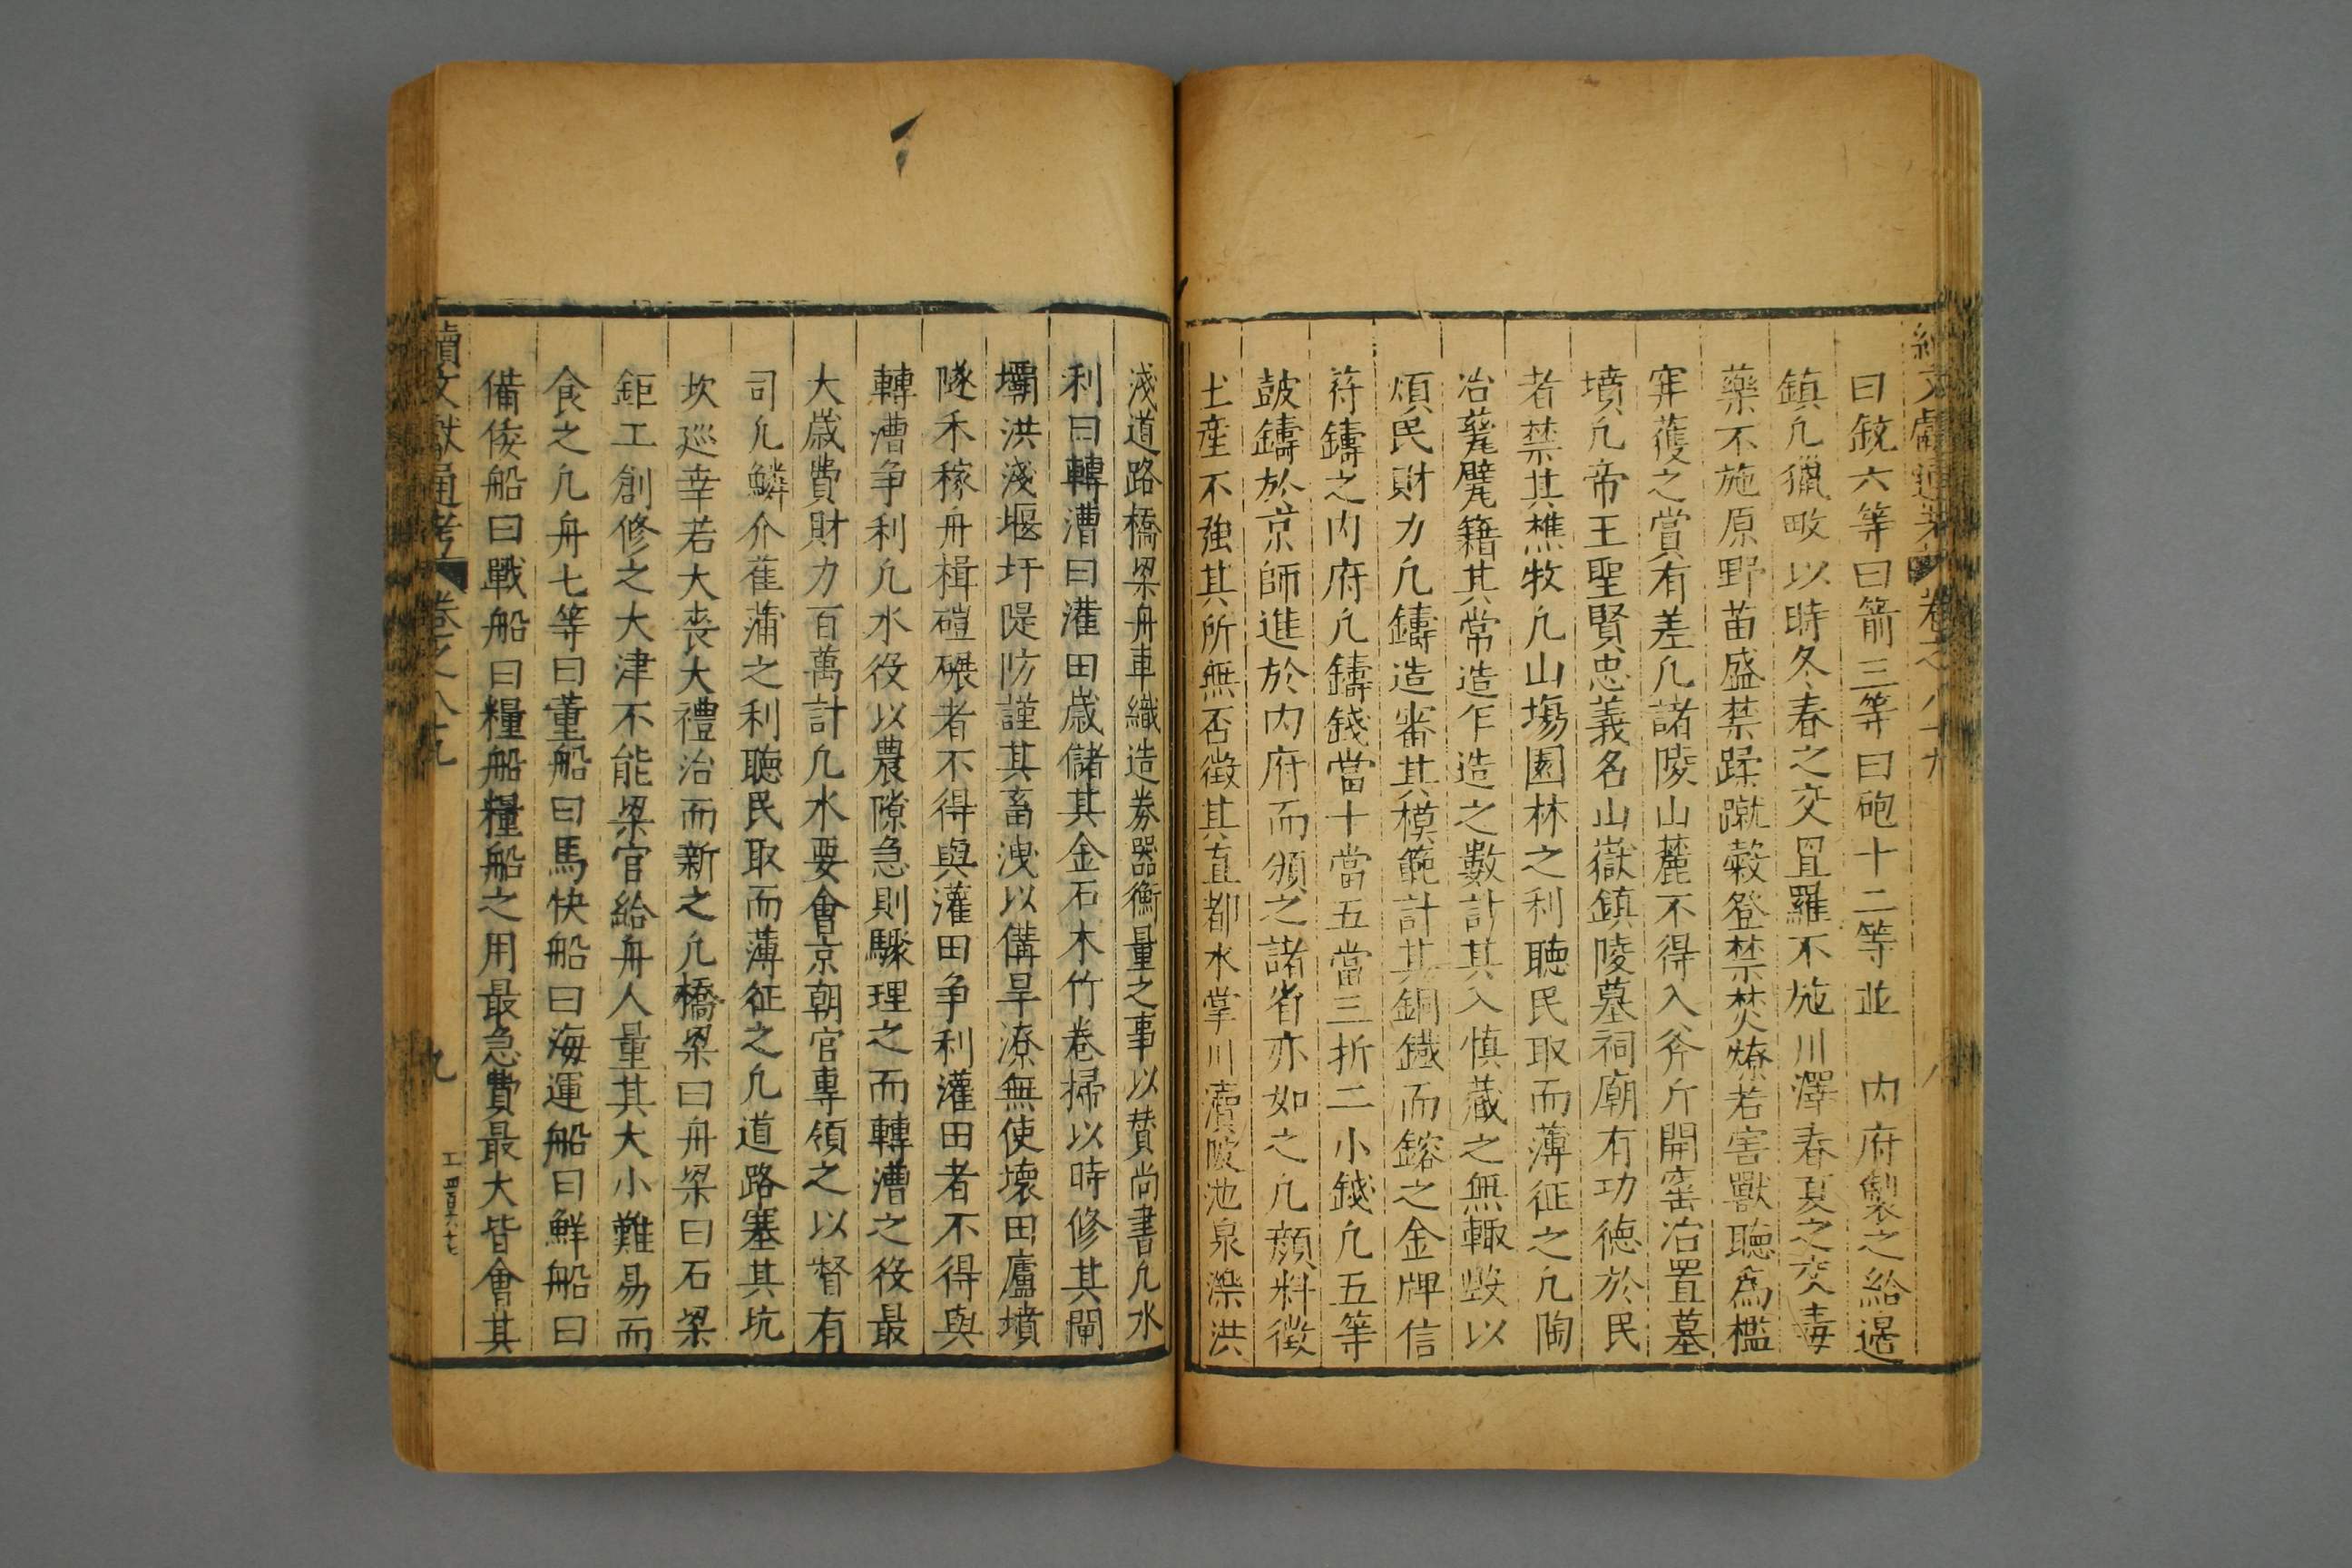 續文獻通考 卷之八十九 八
曰銃六等曰箭三等曰砲十二等並 內府製之給邊
鎮凢獵畋以時冬春之交罝羅不施川澤春夏之交毒
藥不施原野苗盛禁蹂躐穀登禁焚燎若害獸聽爲檻
穽獲之賞有差凢諸陵山麓不得入斧斤開窑冶置墓
墳凢帝王聖賢忠義名山嶽鎮陵墓祠廟有功德於民
者禁其樵牧凢山場園林之利聽民取而薄征之凢陶
冶甃甓籍其常造乍造之數計其入慎藏之無輙毀以
煩民財力凢鑄造審其模範計其銅鐵而鎔之金牌信
符鑄之內府凢鑄錢當十當五當三折二小錢凢五等
皷鑄於京師進於內府而頒之諸省亦如之凢顏料徵
土産不強其所無否徵其直都水掌川瀆陂池泉濼洪
淺道路橋梁舟車織造券器衡量之事以賛尚書凢水
利曰轉漕曰灌田歲儲其金石木竹卷掃以時修其閘
壩洪淺堰圩隄防謹其畜洩以備旱潦無使壞田廬墳
隧禾稼舟楫磑碾者不得與灌田争利灌田者不得與
轉漕争利凢水役以農隙急則驟理之而轉漕之役最
大歲費財力百萬計凢水要會京朝官專領之以督有
司凢鱗介萑蒲之利聽民取而薄征之凢道路塞其坑
坎廵幸若大喪大禮治而新之凢橋梁曰舟梁曰石梁
鉅工創修之大津不能梁官給舟人量其大小難易而
食之凢舟七等曰黃船曰馬快船曰海運船曰鮮船曰
備倭船曰戰船曰糧船糧船之用最急費最大皆會其
續文獻通考 卷之八十九 九